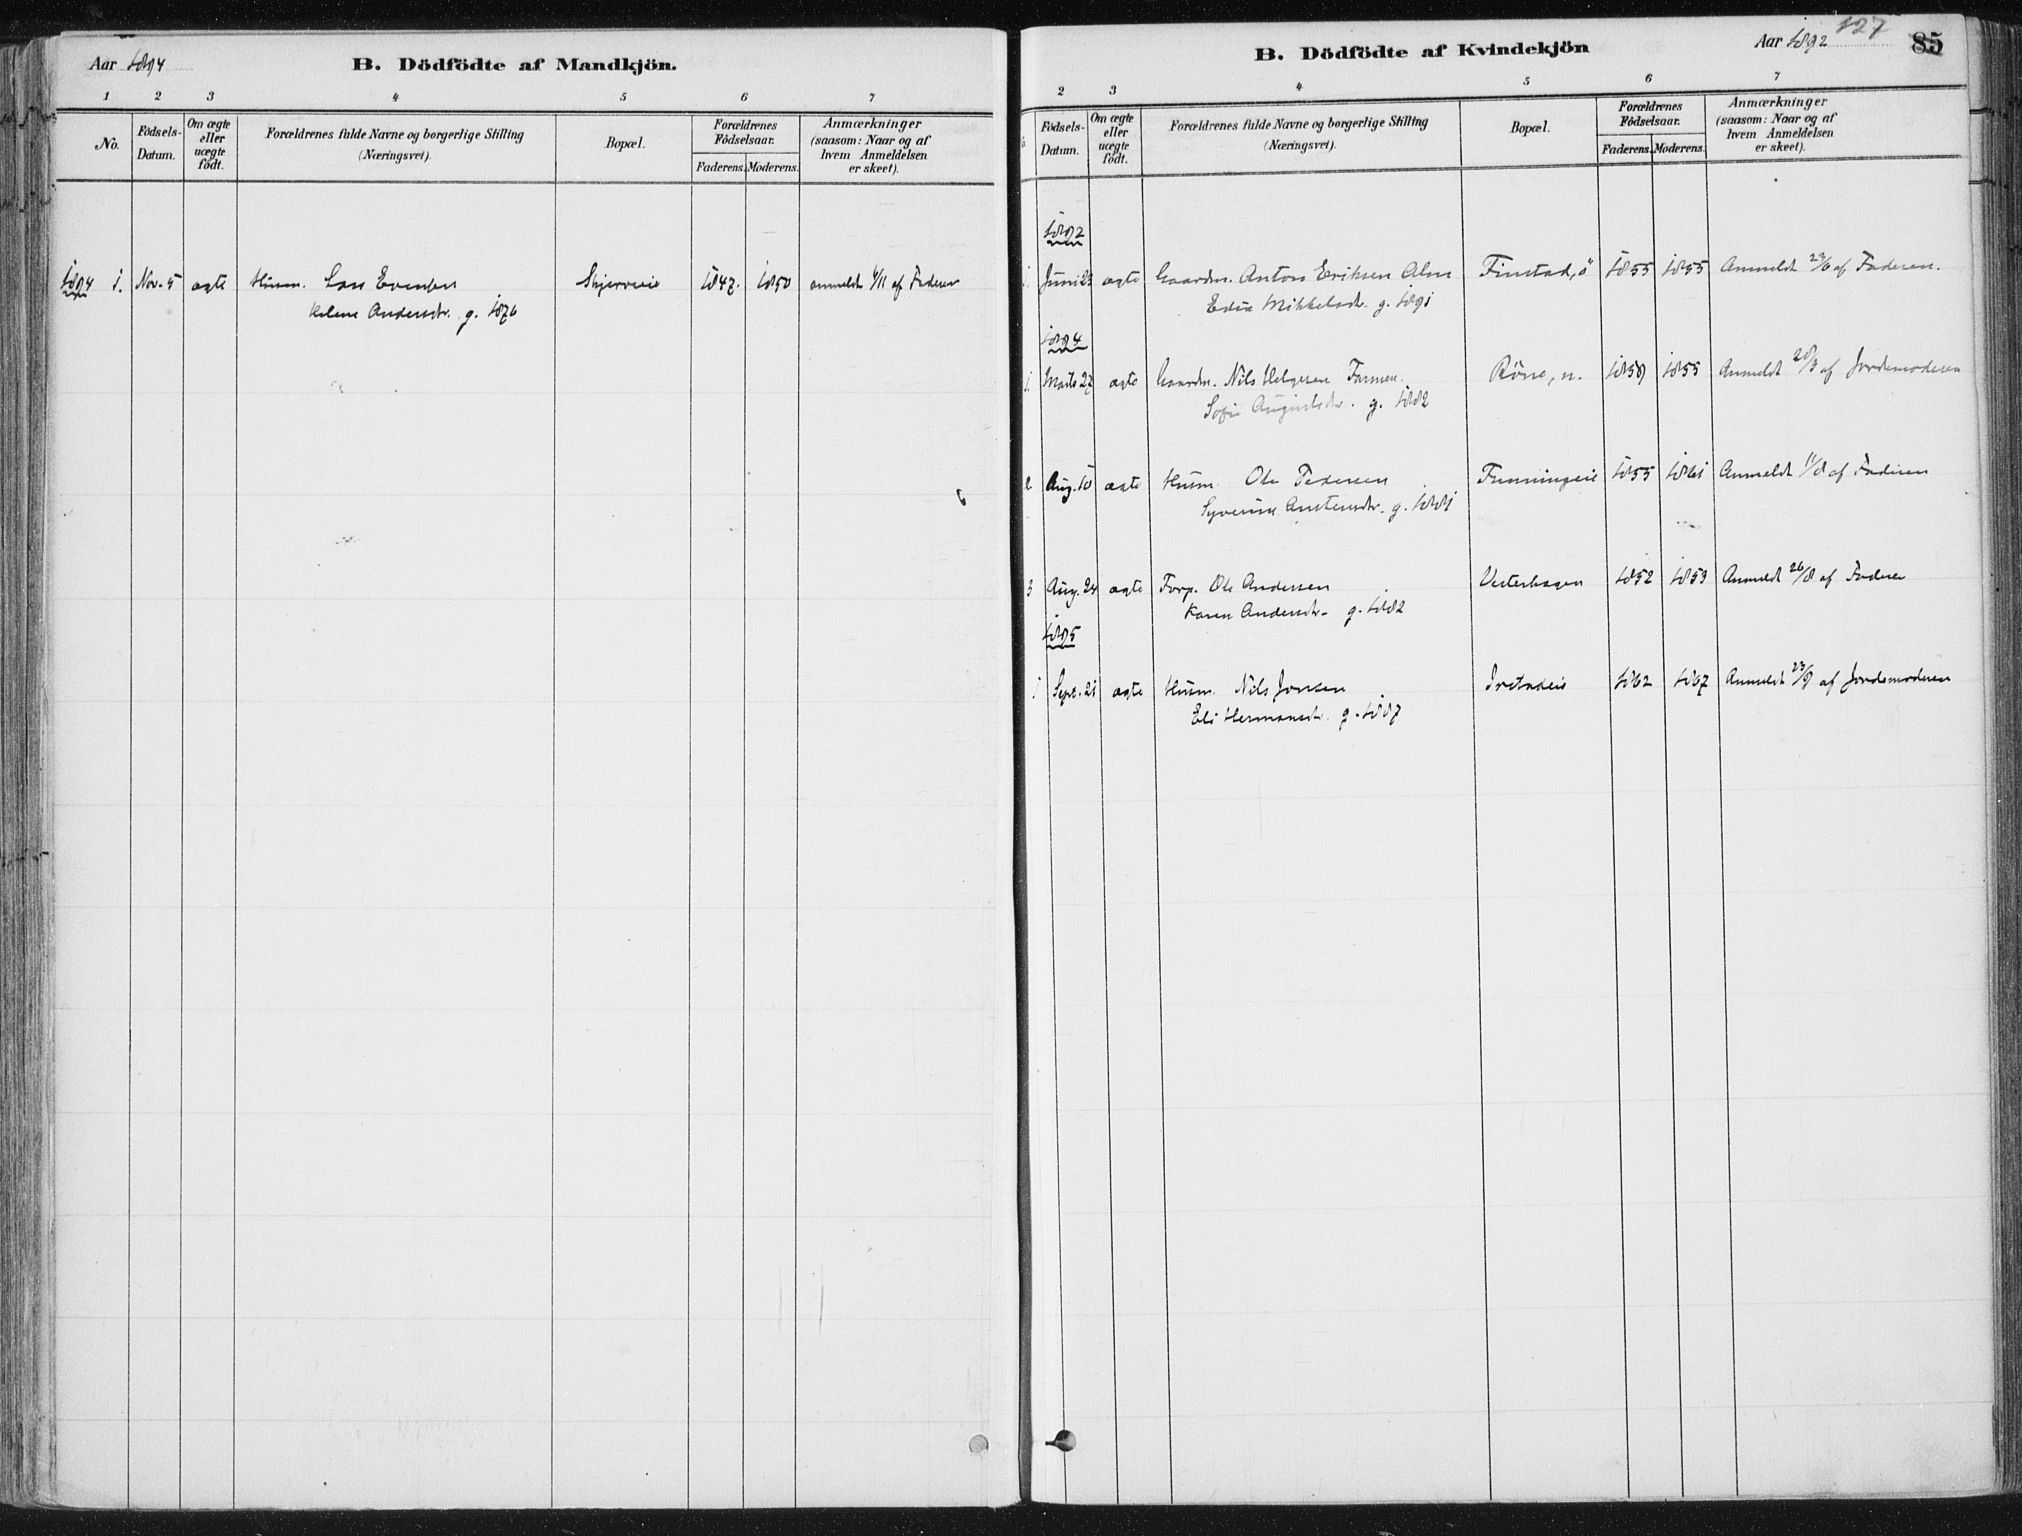 Aar 1894
B. Dödfödte af Mandkjön.
1 2 3 4 5 6 7
No.
Födsels-Datum.
Om ægte eller uægte födt.
Forældrenes fulde Navne og borgerlige Stilling (Næringsvei).
Bopæl.
Forældrenes Födselsaar.
Faderens. Moderens.
Anmærkninger (saasom: Naar og af hvem Anmeldelsen er skeet).
1894 1. Nov. 5 ægte Husm. Lars Evensen Skjerveie 1847. 1850 anmeldt /11 af Faderen
Andersdtr. g. 1876
127
Aar 1892
85
B. Dödfödte af Kvindekjön
2 3 4 5 6 7
Födsels-Datum.
Om ægte eller uægte födt.
Forældrenes fulde Navne og borgerlige Stilling (Næringsvei).
Bopæl.
Forældrenes Födselsaar.
Faderens. Moderens.
Anmærkninger (saasom: Naar og af hvem Anmeldelsen er skeet).
1892
1. Juni 23 ægte Gaardm. Anton Eriksen Alm Finstad, ö 1855 1855 Anmeldt 23/6 af Faderen.
Mikkelsdtr. g. 1891
1894
1. Marts 27 ægte Gaardm. Nils Helgesen Farmen. Röne, n. 1859 1855 Anmeldt 28/3 af Jordemoderen
Sofie Augustsdtr. g. 1882
2 Aug. 10 ægte Husm. Ole Pedersen 1855 1861 Anmeldt 11/8 af Faderen
Syverine g. 1881
3 Aug. 24 ægte Forp. Ole Andersen Vesterhagen 1852 1853 Anmeldt 26/8 af Faderen
Karen Andersdtr. g. 1882
1895
1 Sept. 21 ægte Husm. Nils Jonsen 1862 1867 Anmeldt 23/9 af Jordemoderen
Eli Hermansdtr. g. 1887